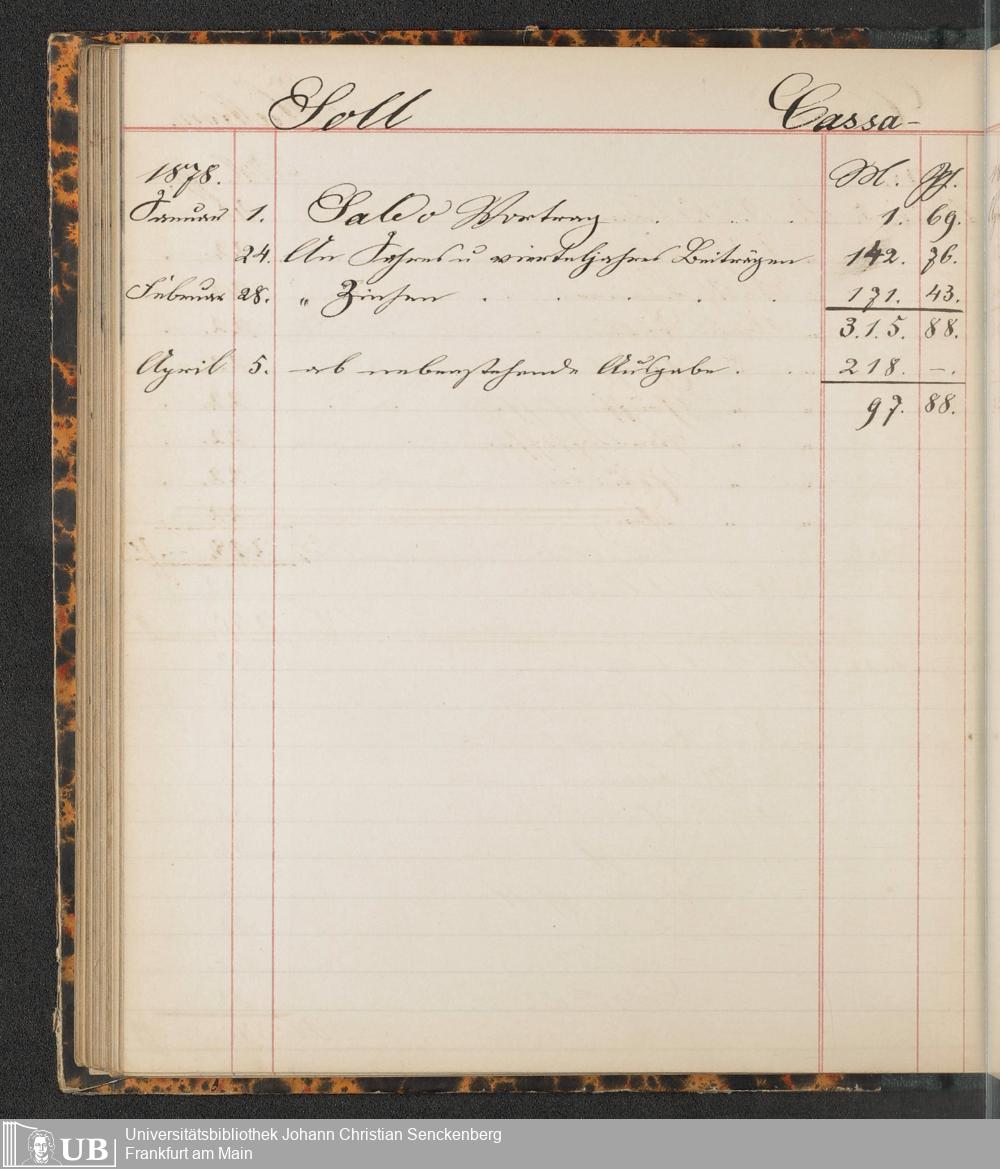 Soll Cassa-
1878. M. Pf.
Januar 1. Saldo Vortrag . . . . 1. 69.
24. An Jahres u vierteljahres Beiträgen 142. 76.
Februar 28. " Zinsen . . . . . . 171. 43.
3.1.5. 88.
April 5. ab nebenstehende Ausgabe . . 218. —.
97. 88.
UB
Universitätsbibliothek Johann Christian Senckenberg
Frankfurt am Main